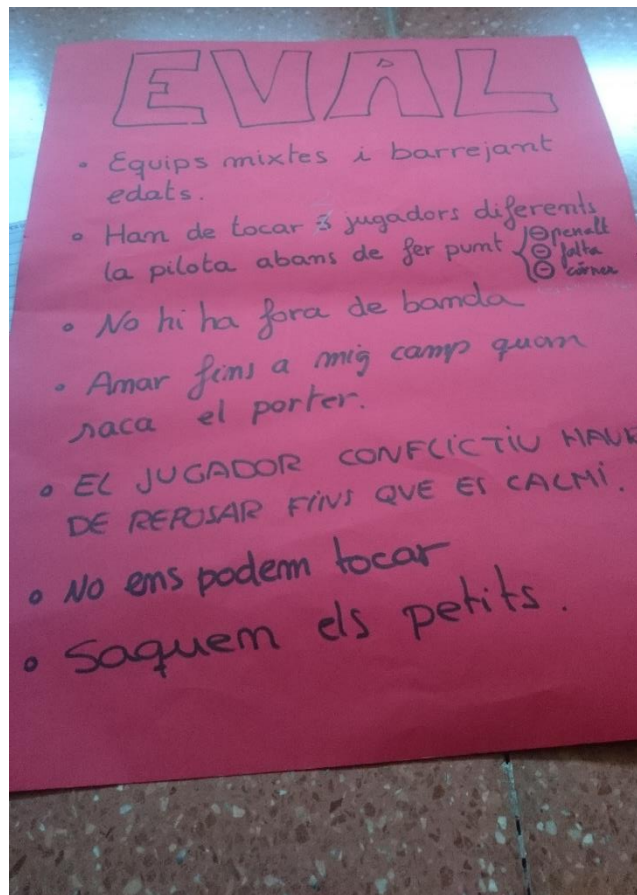 EVAL
• Equips mixtes i barrejant
edats.
• Han de tocar 3 jugadors diferents
la pilota abans de fer punt { ⊖ penalt
⊖ falta
⊖ córner
• No hi ha fora de banda
• Anar fins a mig camp quan
saca el porter.
• EL JUGADOR CONFLICTIU HAUR
DE REPOSAR FINS QUE ES CALMI.
• No ens podem tocar
• Saquem els petits.